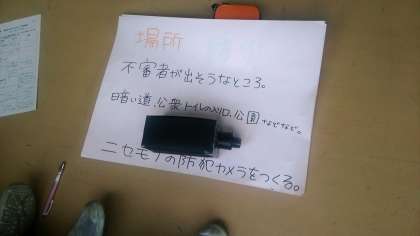 場所
不審者が出そうなところ。
暗い道、公衆トイレの入り口、公園などなど。
ニセモノの防犯カメラをつくる。